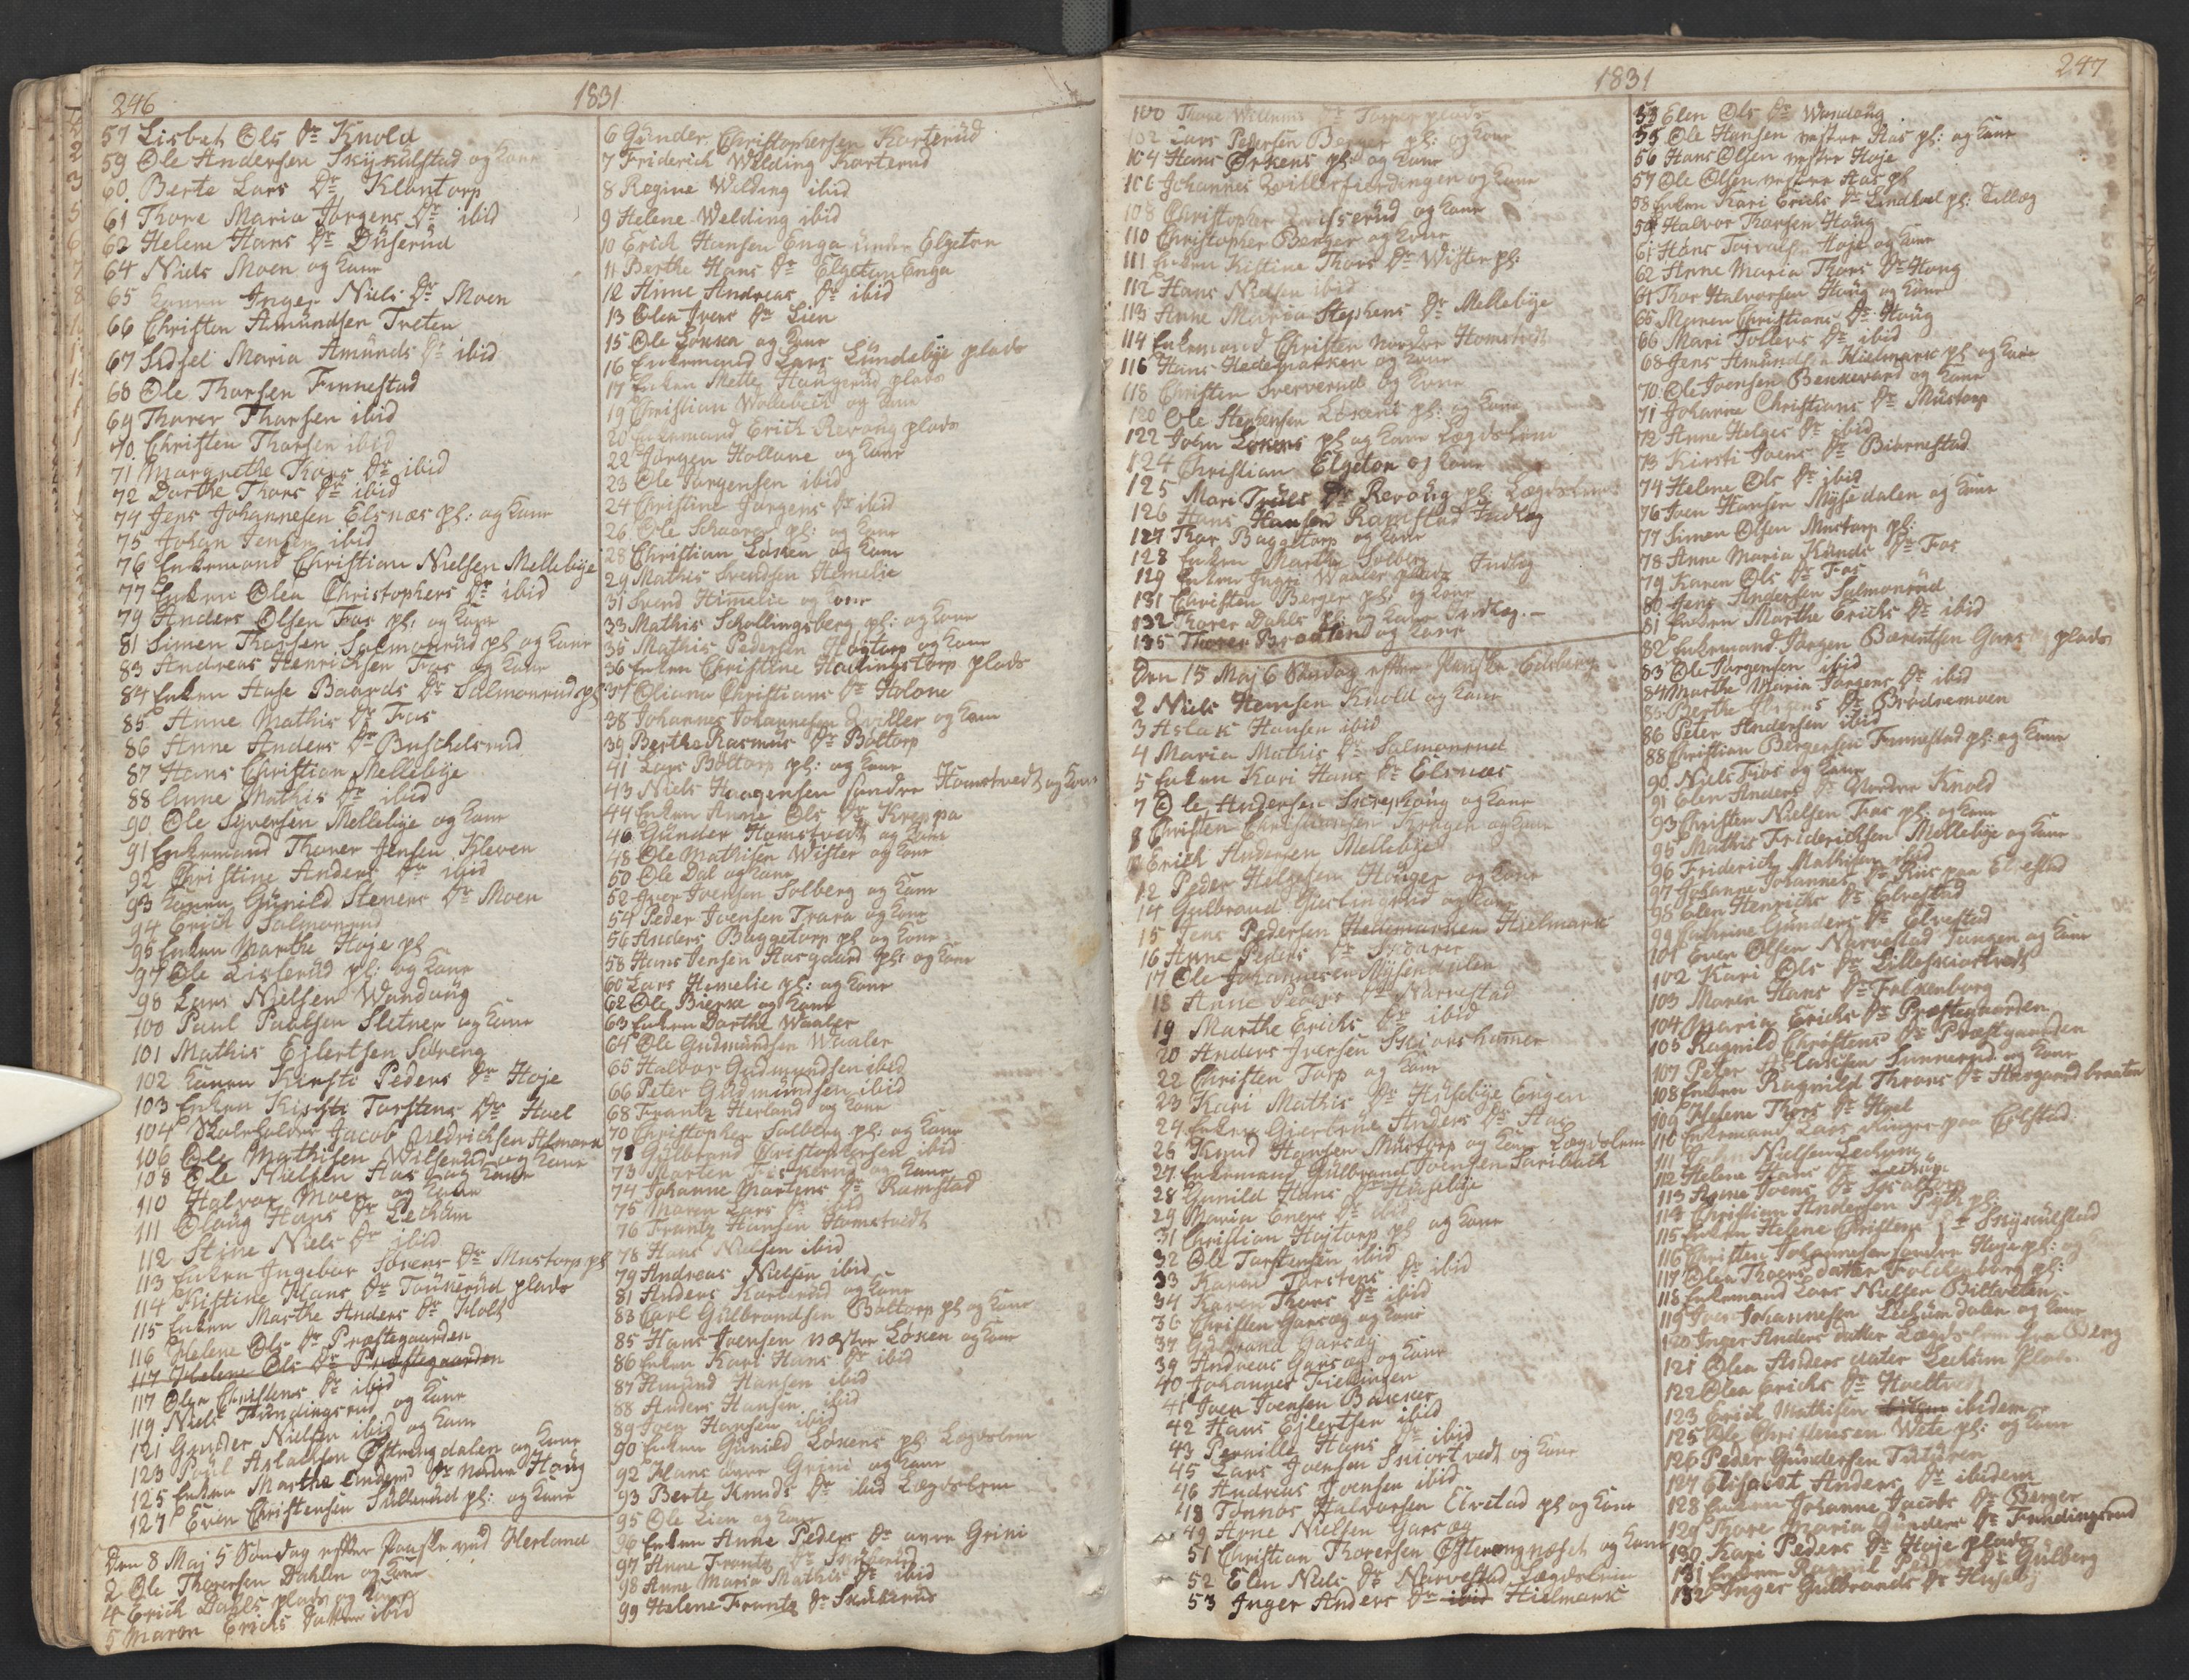 246
1831
57 Lisbet Ols Dr Knold
59 Ole Andersen Skykulstad og Kone
60. Berte Lars Dr Klontorp
61 Thore Maria Jørgens Dr ibid
62 Helene Hans Dr Düserud
64 Niels Moen og Kone
65 Konen Inger Niels Dr Moen
66 Christen Amündsen Treten
67 Sidsel Maria Amünds Dr ibid
68 Ole Thorsen Finnestad
69 Thorer Thorsen ibid
70. Christen Thorsen ibid
71 Margrethe Thors Dr ibid
72 Dorthe Thors Dr ibid
74 Jens Johannesen Elsnæs pl: og Kone
75 Johan Jensen ibid
76 Enkemand Christian Nielsen Mellebÿe
77 Enken Olea Christophers Dr ibid
79 Anders Olsen Fos pl: og Kone
81 Simen Thorsen Salmonrüd pl og Kone
83 Andreas Henrichsen Fos og Kone
84 Enken Aase Baards Dr Salmonrud pl
85 Anne Mathis Dr Fos
86 Anne Anders Dr Buschelsrud
87 Hans Christian Mellebÿe
88 Anne Mathis Dr ibid
90 Ole Syversen Mellebÿe og Kone
91 Enkemand Thorer Jensen Kleven
92 Christine Anders Dr ibid
93 Konen Günild Steners Dr Moen
94 Erich Salmonrud
95 Enken Marthe Høje pl
97 Ole Lisserüd pl: og Kone
98 Lars Nielsen Wandüng
100 Paul Paulsen Sletner og Kone
101 Mathis Ejlertsen Søreng
102 Konen Kirsti Peders Dr Høje
103 Enken Kirsti Torstens Dr Hoel
104 Skoleholder Jacob Aldrichsen Homark
106 Ole Mathisen Wilserüd og Kone
108 Ole Nielsen Aas og Kone
110 Halvor Moen og Kone
111 Olaug Hans Dr Lechüm
112 Stine Niels Dr ibid
113 Enken Ingebor Sørens Dr Mustorp pl
114 Kistine Hans Dr Tonkerüd plads
115 Enken Marthe Anders Dr Holt
116 Helene Ols Dr Præstegaarden
117 Helene Ols Dr Præstegaarden
117 Olea Christens Dr ibid
119 Niels Fündingsrud og Kone
121 Gunder Nielsen ibid og Kone
123 Poul Aslachsen Østengdalen og Kone
125 Enken Marthe Enders Dr nordre Haüg
127 Even Christensen Süllerüd pl: og Kone
Den 8 Maj 5 Søndag efter Paaske ved Herland
2 Ole Thorersen Dahlen og Kone
4 Erich Dahls plads og Kone
5 Maren Erichs Datter ibid
6 Günder Christophersen Korterüd
7 Friderich Wilding Korterud
8 Regine Wilding ibid
9 Helene Welding ibid
10 Erich Hansen Enga ünder Elgeton
11 Berthe Hans Dr Elgeton Enga
12 Anne Andreas Dr ibid
13 Olea Ivers Dr Lien
15 Ole Løkka og Kone
16 Enkemand Lars Lündebÿe plads
17 Enken Mette Haügerüd plads
19 Christian Wollebech og Kone
20 Enkemand Erich Revoug plads
22 Jørgen Hollane og Kone
23 Ole Jørgensen ibid
24 Christine Jørgens Dr ibid
26 Ole Skaarer pl: og Kone
28 Christian Løsken og Kone
29 Mathis Svendsen Hemelie
31 Svend Himelie og Kone
33 Mathis Schollingsberg pl: og Kone
35 Mathis Pedersen Høgtorp og Kone
36 Enken Christine Hadingstorp plads
37 Oliana Christians Dr Holone
38 Johannes Johannesen Qviller og Kone
39 Berthe Rasmüs Dr Boltorp
41 Lars Boltorp pl: og Kone
43 Niels Haagensen søndre Homstvedt og Kone
44 Enken Anne Ols Dr Kreppa
46 Günder Homstvedt og Kone
48 Ole Mathisen Wister og Kone
50 Ole Dal og Kone
52 Iver Ivensen Solberg og Kone
54 Peder Joensen Trara og Kone
56 Anders Baggetorp pl og Kone
58 Hans Jensen Aasgaard pl: og Kone
60 Lars Himelie pl: og Kone
62 Ole Bierke og Kone
63 Enken Dorthe Waaler
64 Ole Gudmündsen Waaler
65 Halvor Gudmundsen ibid
66 Peter Güdmündsen ibid
68 Frantz Herland og Kone
70 Christopher Solberg pl: og Kone
71 Gülbrand Christophersen ibid
73 Morten Fiskerud og Kone
74 Johanne Mortens Dr Ramstad
75 Maren Lars Dr ibid
76 Frantz Hansen Homstvedt
78 Hans Nielsen ibid
79 Andreas Nielsen ibid
81 Anders Korterud og Kone
83 Carl Gülbrandsen Boltorp pl og Kone
85 Hans Joensen næstre Løken og Kone
86 Enken Kari Hans Dr ibid
87 Amünd Hansen ibid
88 Anders Hansen ibid
89 Joen Hansen ibid
90 Enken Günild Løkens pl: Lægdslem
92 Hans øvre Grini og Kone
93 Berte Knuds Dr ibid Lægdslem
95 Ole Lien og Kone
96 Enken Anne Peders Dr øvre Grini
97 Anne Frantz Dr Sküberüd
98 Anne Maria Mathis Dr ibid
99 Helene Frantz Dr Sküberud
1831
247
100 Thore Willums Dr Torper plads
102 Lars Pedersen Berger pl: og Kone
104 Hans Ørkens pl: og Kone
106 Johannes Qvillerfiordingen og Kone
108 Christopher og Kone
110 Christopher Berger og Kone
111 Enken Kistine Thors Dr Wister pl:
112 Hans Nielsen ibid
113 Anne Maria Stephens Dr Mellebÿe
114 Enkemand Christen nordre Homstvedt
116 Hans Hedemarken og Kone
118 Christen Sververud og Kone
120 Ole Stephensen Løkens pl: og Kone
122 John Løkens pl og Kone Lægdslem
124 Christian Elgeton og Kone
125 Mari Truls Dr Revoüg pl: Lægdslem
126 Hans Hansen Ramstad Indlæg
127 Thor Baggetorp og Kone
128 Enken Marthe Solberg
129 Enken Ingri Waaler plads Indlæg
131 Christen Berger pl: og Kone
132 Thorer Dahls pl: og Kone Indlæg.-
135 Thorer Braaten og Kone
Den 15 Maj 6 Søndag efter Paaske Edsberg
2 Niels Hemsen Knold og Kone
3 Aslak Hansen ibid
4 Maria Mathis Dr Salmonrud
5 Enken Kari Hans Dr Elsnæs
7 Ole Andersen Skrephoüg og Kone
8 Christen Christiansen Krogen og Kone
Erich Andersen Mellebÿe
12 Peder Helgesen Houger og Kone
14 Gulbrand Gieslingrud og Kone
15 Jens Pedersen Hedemarken Hielmark
16 Anne Peders Dr Skoarer
17 Ole Johannesen Mÿsendalen
18 Anne Peders Dr Narvestad
19 Marthe Erichs Dr ibid
20 Anders Iversen Skiønhamer
22 Christen Torp og Kone
23 Kari Mathis Dr Hüsebÿe Engen
24 Enken Gierbrüe Anders Dr Aas
26 Knud Hansen Mustorp og Kone Lægdslem
27 Enkemand Gülbrand Joensen Saribakk
28 Gunild Hans Dr Hüsebÿe
29 Maria Eners Dr ibid
31 Christian Høitorp pl og Kone
32 Ole Torstensen ibid
33 Karen Torstens Dr ibid
34 Karen Thors Dr ibid
36 Christen Garsæg og Kone
37 Gulbrand Garsæg
39 Andreas Garsæg og Kone
40 Johannes Fieldingen
41 Joen Joensen Bakker
42 Hans Ejlertsen ibid
43 Pernille Hans Dr ibid
45 Lars Joensen Skiortvedt og Kone
46 Andreas Joensen ibid
48 Tønnos Halvorsen Elvestad pl og Kone
49 Arne Nielsen Garsæg
51 Christian Thorersen Østerengnæset og Kone
52 Elen Niels Dr Narvestad Lægdslem
53 Inger Anders Dr ibid Hielmark
53 Elen Ols Dr Wandüng
55 Ole Hansen vestre Aas pl: og Kone
56 Hans Olsen vestre Høje
57 Ole Olsen vestre Aas pl
58 Enken Kari Erichs Dr Lindhol pl: Tillæg
59 Halvor Thorsen Haüg
61 Hans Torvals Høje og Kone
62 Anne Maria Thors Dr Haug
64 Thor Halvorsen Haüg og Kone
65 Maren Christians Dr Haüg
66 Mari Tollers Dr ibid
68 Jens Amündsen Hielmark pl og Kone
70. Ole Joensen Benkevard og Kone
71 Johanne Christians Dr Mustorp
72 Anne Helges Dr ibid
73 Kirsti Joens Dr Biørnestad
74 Helene Ols Dr ibid
76 Joen Hansen Mÿsedalen og Kone
77 Simen Olsen Mustorp pl:
78 Anne Maria Knuds Dr Fos
79 Karen Ols Dr Fos
80. Jens Andersen Salmonrüd
81 Enken Marthe Erichs Dr ibid
82 Enkemand Jørgen Bærentsen Gars plads
83 Ole Jørgensen ibid
84 Marthe Maria Jørgens Dr ibid
85 Berthe Jørgens Dr Brødremoen
86 Peter Andersen ibid
88 Christian Bergersen Finnestad pl: og Kone
90. Niels Fios og Kone
91 Elen Anders Dr Nordre Knold
93 Christen Nielsen Fos pl: og Kone
95 Mathis Friderichsen Mellebÿe og Kone
96 Friderich Mathisen ibid
97 Johanne Johannes Dr Riis paa Elvestad
98 Elen Henrichs Dr Elvestad
99 Kathrine Günders Dr Elvestad
101 Even Olsen Narvestad Tangen og Kone
102 Kari Ols Dr Lilleskiortvedt
103 Maren Hans Dr Falkenborg
104 Maria Erichs Dr Præstegaarden
105 Ragnild Christens Dr Præstgaarden
107 Peter Aslaksen Sünnerud og Kone
108 Enken Ragnild Throns Dr Aasgaard braaten
109 Helene Thors Dr Hoel
110 Enkemand Lars Ringer paa Elvestad
111 John Nielsen Lechum
112 Helene Hans Dr Lechum
113 Anne Joens Dr
114 Christian Andersen pl:
115 Enken Helene Christens Dr Skÿkülstad
116 Christen Johannesen søndre Høje pl: og
117 Olea Thoers datter Foldenborg pl:
118 Enkemand Lars Nielsen Biltereten
119 Joen Johannesen Lechumdalen og Kone
120 Inger Anders datter Lægdslem fra Berg
121 Olea Anders dater Lechüm Plads
122 Olea Erichs Dr Hoeltved
123 Erich Mathisen ibidem
125 Ole Christensen Wete pl: og Kone
126 Peder Gündersen Tütüren
127 Elisabet Anders Dr ibidem
128 Enken Johanne Jacobs Dr Berger
129 Thore Maria Günders Dr Fundingsrud
130 Kari Peders Dr Høje plads
131 Enken Ragnil Peders Dr Gülberg
132 Inger Gulbrands Dr Hüsebÿ